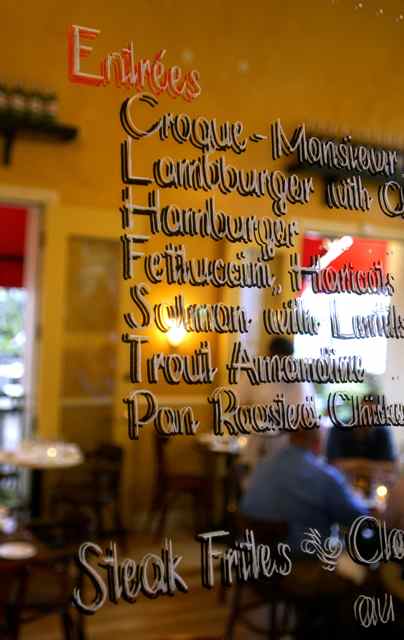 Entrées
Croque-Monsieur
Lambburger with O
Hamburger
Fettuccini, Haricots
Salmon with Lentils
Trout Amandine
Pan Roasted Chicke
Steak Frites & Cla
au